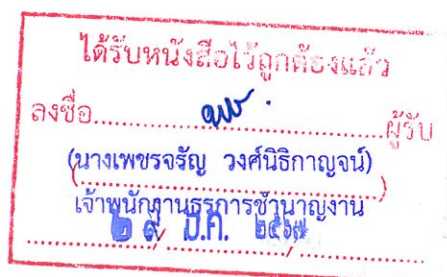 ได้รับหนังสือไว้ถูกต้องแล้ว
ลงชื่อ....................ผู้รับ
(นางเพชรจรัญ วงศ์นิธิกาญจน์)
เจ้าพนักงานธุรการชำนาญงาน
๒๙ มี.ค. ๒๕๖๗